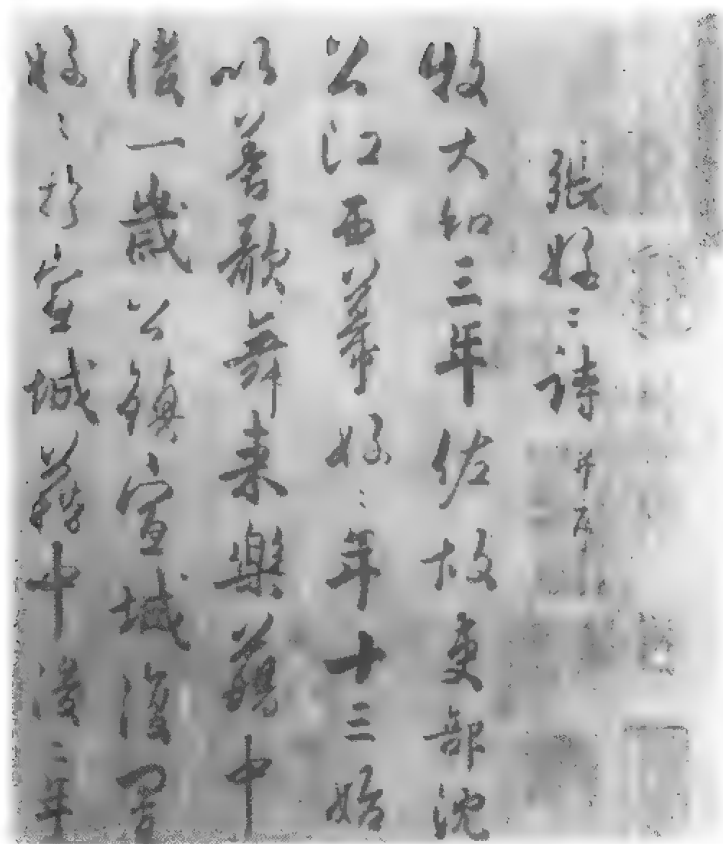 張好﹕詩并序
牧大和三年佐故吏部沈
公江西幕好﹕年十三始
以善歌舞来樂籍中
後一歲公鎮宣城復置
好﹕於宣城籍中後二年